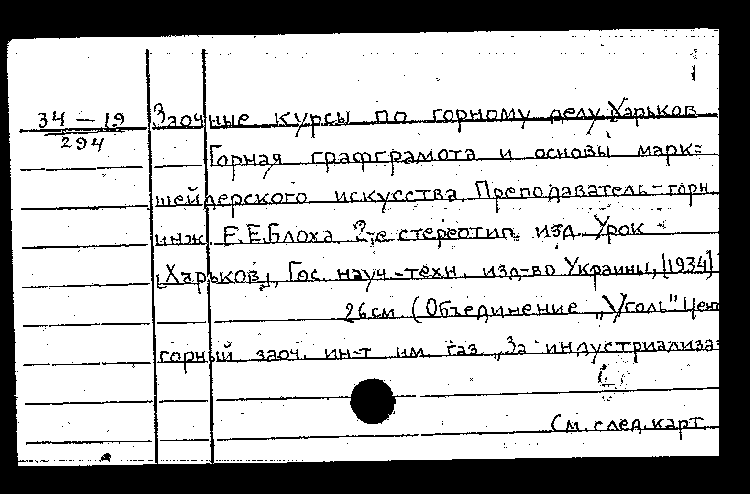 34 – 19
294
Заочные курсы по горному делу. Харьков
Горная графграмота и основы марк=
шейдерского искусства. Преподаватель – горн.
инж. Е.Е.Блоха. 2-е стереотип. изд. Урок
[Харьков], Гос. науч.-техн. изд-во Украины, [1934]
26 см. (Объединение „Уголь" Цен
горный заоч. ин-т им. газ. „За индустриализа=
См. след. карт.